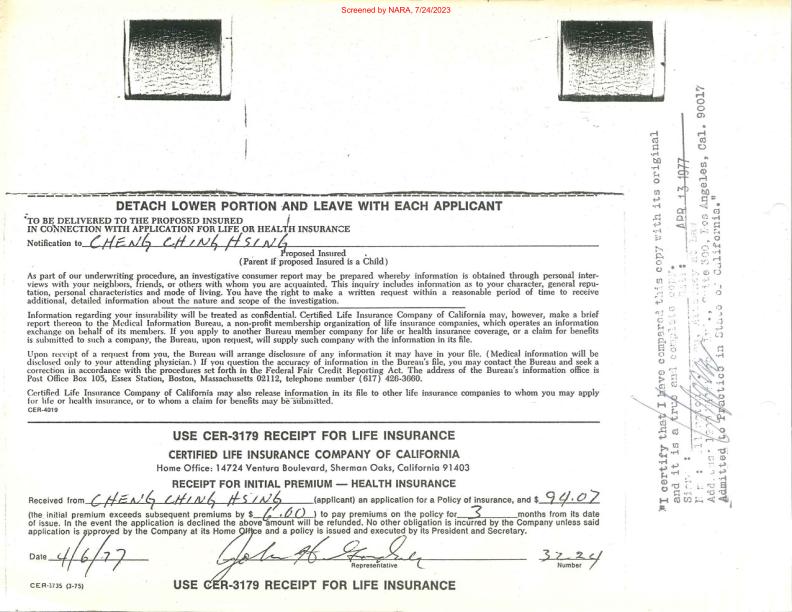 Screened by NARA, 7/24/2023
DETACH LOWER PORTION AND LEAVE WITH EACH APPLICANT
TO BE DELIVERED TO THE PROPOSED INSURED
IN CONNECTION WITH APPLICATION FOR LIFE OR HEALTH INSURANCE
Notification to CHENG CHING HSING
Proposed Insured
(Parent if proposed Insured is a Child)
As part of our underwriting procedure, an investigative consumer report may be prepared whereby information is obtained through personal inter-
views with your neighbors, friends, or others with whom you are acquainted. This inquiry includes information as to your character, general repu-
tation, personal characteristics and mode of living. You have the right to make a written request within a reasonable period of time to receive
additional, detailed information about the nature and scope of the investigation.
Information regarding your insurability will be treated as confidential. Certified Life Insurance Company of California may, however, make a brief
report thereon to the Medical Information Bureau, a non-profit membership organization of life insurance companies, which operates an information
exchange on behalf of its members. If you apply to another Bureau member company for life or health insurance coverage, or a claim for benefits
is submitted to such a company, the Bureau, upon request, will supply such company with the information in its file.
Upon receipt of a request from you, the Bureau will arrange disclosure of any information it may have in your file. (Medical information will be
disclosed only to your attending physician.) If you question the accuracy of information in the Bureau's file, you may contact the Bureau and seek a
correction in accordance with the procedures set forth in the Federal Fair Credit Reporting Act. The address of the Bureau's information office is
Post Office Box 105, Essex Station, Boston, Massachusetts 02112, telephone number (617) 426-3660.
Certified Life Insurance Company of California may also release information in its file to other life insurance companies to whom you may apply
for life or health insurance, or to whom a claim for benefits may be submitted.
CER-4019
USE CER-3179 RECEIPT FOR LIFE INSURANCE
CERTIFIED LIFE INSURANCE COMPANY OF CALIFORNIA
Home Office: 14724 Ventura Boulevard, Sherman Oaks, California 91403
RECEIPT FOR INITIAL PREMIUM — HEALTH INSURANCE
Received from CHENG CHING HSING (applicant) an application for a Policy of insurance, and $ 94.07
(the initial premium exceeds subsequent premiums by $ 6.00) to pay premiums on the policy for 3 months from its date
of issue. In the event the application is declined the above amount will be refunded. No other obligation is incurred by the Company unless said
application is approved by the Company at its Home Office and a policy is issued and executed by its President and Secretary.
Date 4/6/77 John H. 3224
Representative Number
CER-3735 (3-75) USE CER-3179 RECEIPT FOR LIFE INSURANCE
"I certify that I have compared this copy with its original
and it is a true and complete copy.
APR 13 1977
Suite 300, Los Angeles, Cal. 90017
Admitted to Practice in State of California."